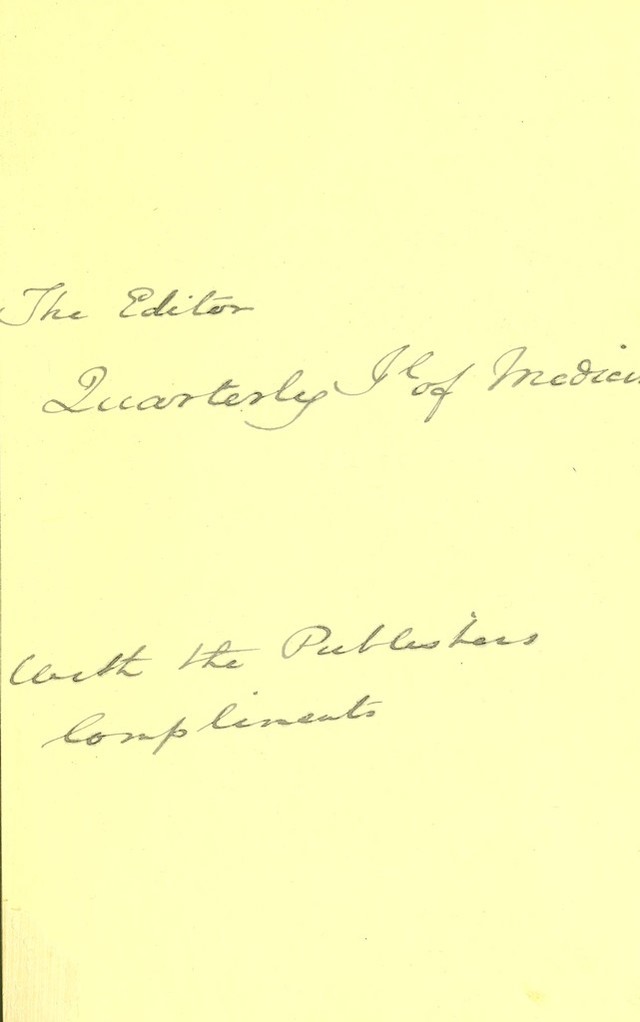 The Editor
Quarterly Jl of Medicin
With the Publishers
Compliments